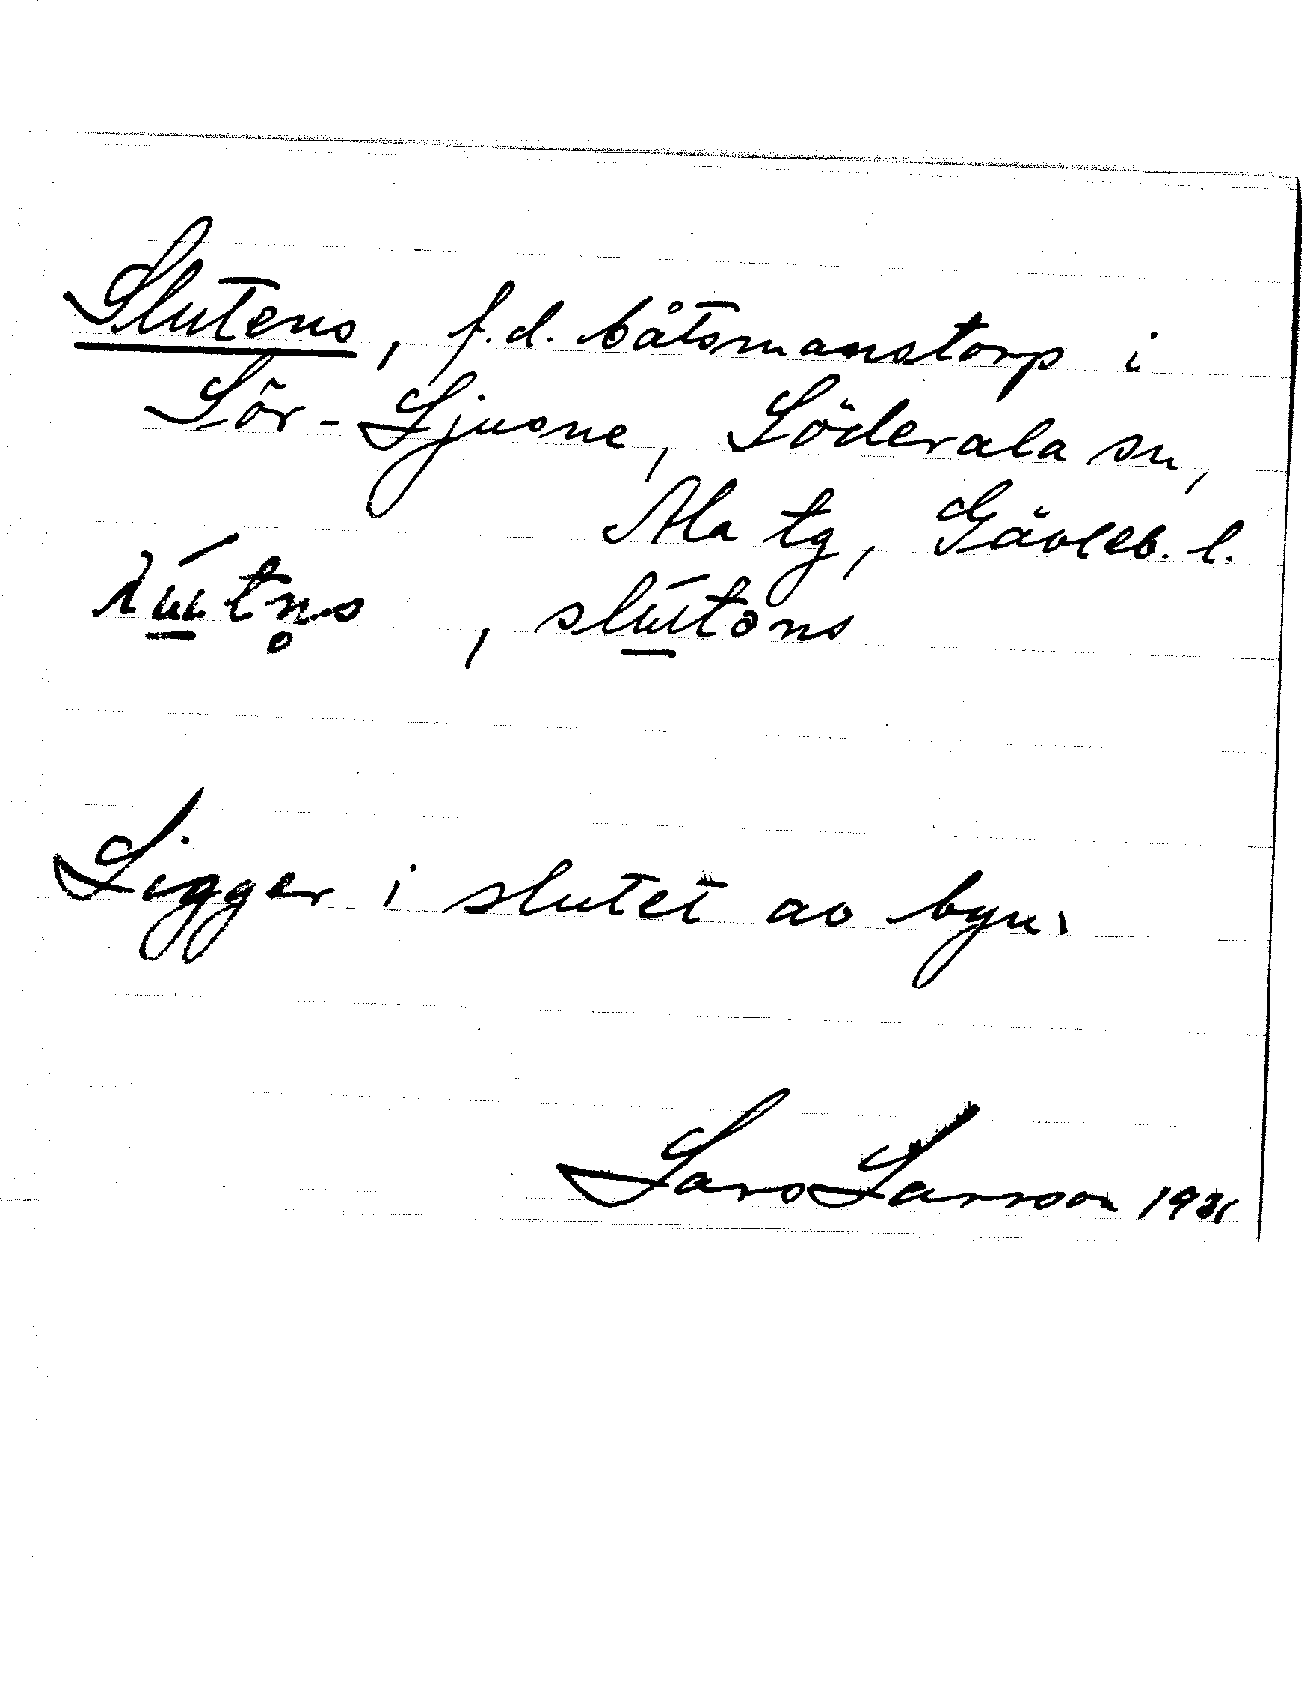 Slutens, f.d. båtsmanstorp i
Sör-Ljusne, Söderala sn,
Ala tg, Gävleb. l.
, slutəns
Ligger i slutet av byn.
Lars Larsson 1931